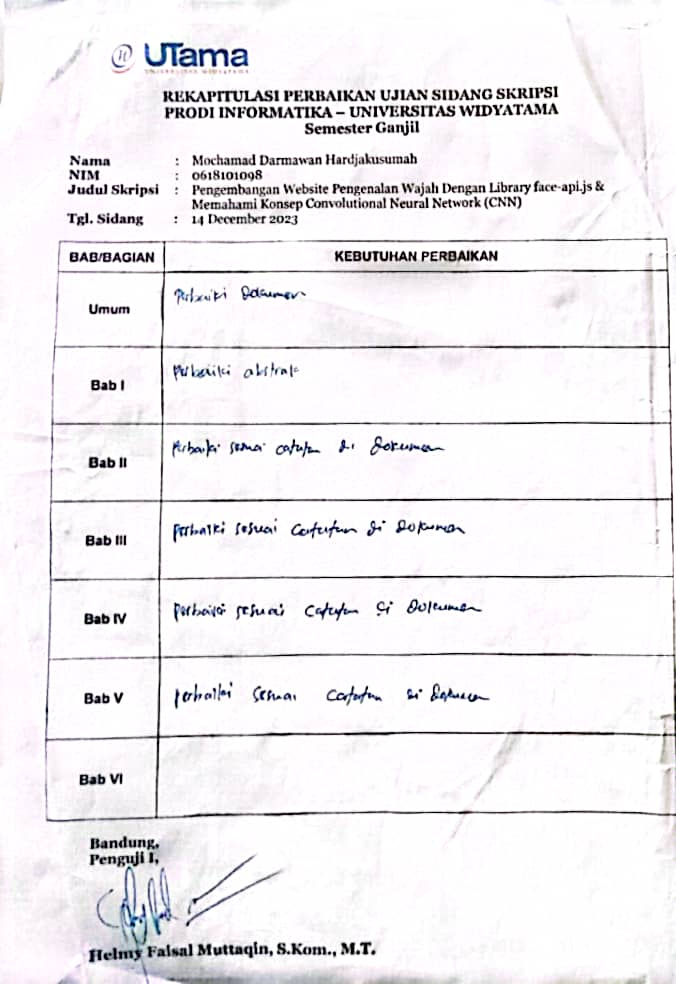 UTama
UNIVERSITAS WIDYATAMA
REKAPITULASI PERBAIKAN UJIAN SIDANG SKRIPSI
PRODI INFORMATIKA – UNIVERSITAS WIDYATAMA
Semester Ganjil
Nama : Mochamad Darmawan Hardjakusumah
NIM : 0618101098
Judul Skripsi : Pengembangan Website Pengenalan Wajah Dengan Library face-api.js &
Memahami Konsep Convolutional Neural Network (CNN)
Tgl. Sidang : 14 December 2023
BAB/BAGIAN KEBUTUHAN PERBAIKAN
Umum Perbaiki Dokumen
Bab I Perbaiki abstrak
Bab II Perbaiki sesuai catatan di Dokumen
Bab III Perbaiki sesuai Catatan di Dokumen
Bab IV Perbaiki sesuai Catatan di Dokumen
Bab V Perbaiki Sesuai Catatan di Dokumen
Bab VI
Bandung,
Penguji I,
Helmy Faisal Muttaqin, S.Kom., M.T.